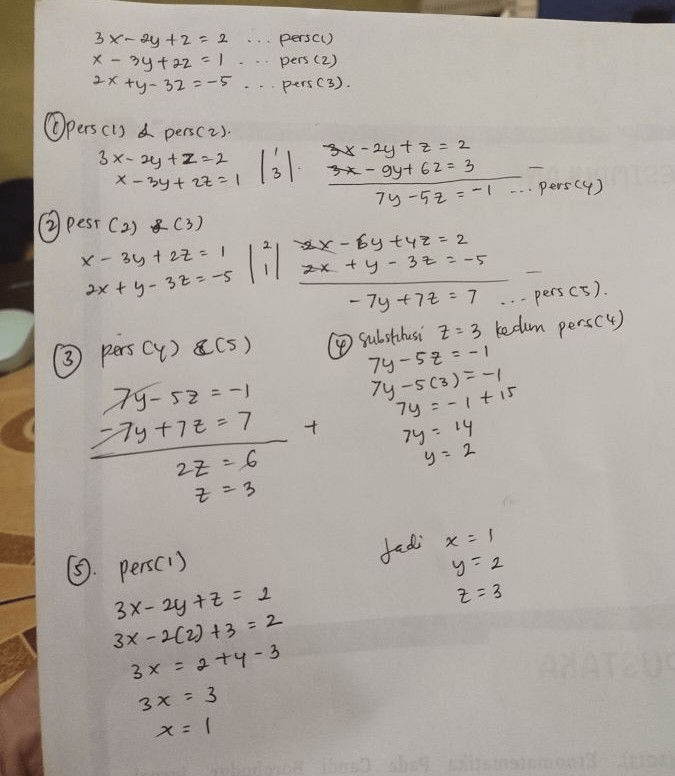 3x - 2y + z = 2 ... pers(1)
x - 3y + 2z = 1 ... pers (2)
2x + y - 3z = -5 ... pers (3).
① pers (1) & pers (2).
3x - 2y + z = 2 | 1 | 3x - 2y + z = 2
x - 3y + 2z = 1 | 3 | 3x - 9y + 6z = 3 -
7y - 5z = -1 ... pers (4)
② pesr (2) & (3)
x - 3y + 2z = 1 | 2 | 2x - 6y + 4z = 2
2x + y - 3z = -5 | 1 | 2x + y - 3z = -5 -
-7y + 7z = 7 ... pers (5).
③ pers (4) & (5)
7y - 5z = -1
-7y + 7z = 7 +
2z = 6
z = 3
④ Substitusi z = 3 kedlm pers (4)
7y - 5z = -1
7y - 5(3) = -1
7y = -1 + 15
7y = 14
y = 2
⑤. pers (1)
3x - 2y + z = 2
3x - 2(2) + 3 = 2
3x = 2 + 4 - 3
3x = 3
x = 1
Jadi x = 1
y = 2
z = 3